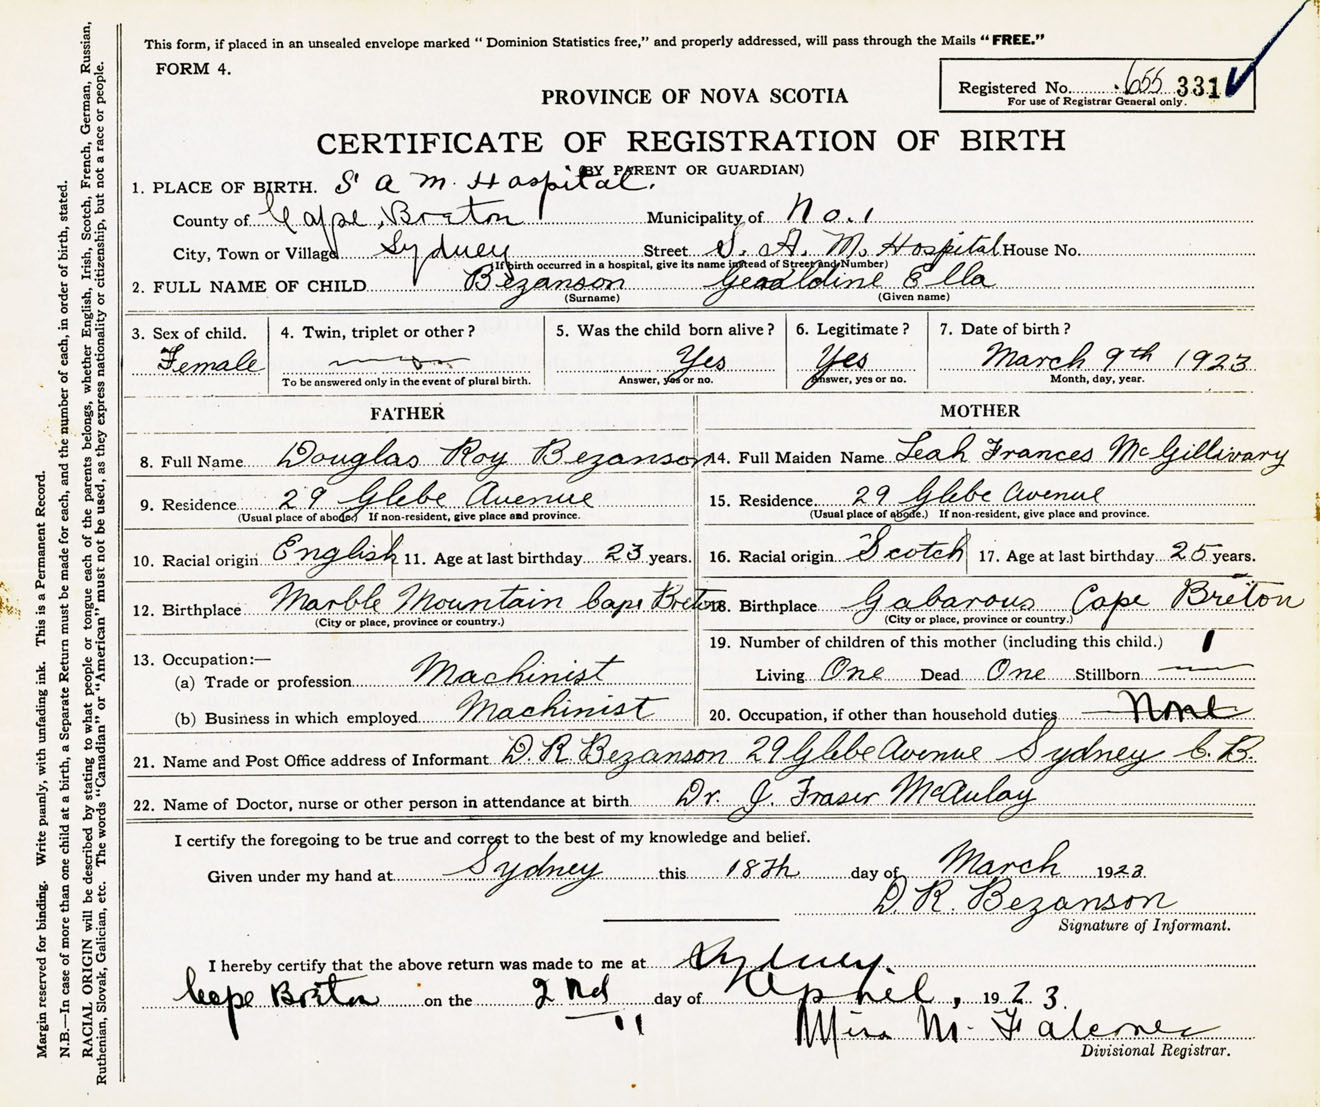 This form, if placed in an unsealed envelope marked “ Dominion Statistics free,” and properly addressed, will pass through the Mails “FREE.”
FORM 4.
Registered No. 655 331
For use of Registrar General only.
PROVINCE OF NOVA SCOTIA
CERTIFICATE OF REGISTRATION OF BIRTH
(BY PARENT OR GUARDIAN)
1. PLACE OF BIRTH. S A M. Hospital.
County of Cape Breton Municipality of No. 1
City, Town or Village Sydney Street S. A. M. Hospital House No.
(If birth occurred in a hospital, give its name instead of Street and Number)
2. FULL NAME OF CHILD Bezanson Geraldine Ella
(Surname) (Given name)
3. Sex of child. 4. Twin, triplet or other? 5. Was the child born alive? 6. Legitimate? 7. Date of birth?
Female Yes Yes March 9th 1923
To be answered only in the event of plural birth. Answer, yes or no. Answer, yes or no. Month, day, year.
FATHER MOTHER
8. Full Name Douglas Roy Bezanson 14. Full Maiden Name Leah Frances McGillivary
9. Residence 29 Glebe Avenue 15. Residence 29 Glebe Avenue
(Usual place of abode.) If non-resident, give place and province. (Usual place of abode.) If non-resident, give place and province.
10. Racial origin English 11. Age at last birthday 23 years. 16. Racial origin Scotch 17. Age at last birthday 25 years.
12. Birthplace Marble Mountain Cape Breton 18. Birthplace Gabarous Cape Breton
(City or place, province or country.) (City or place, province or country.)
19. Number of children of this mother (including this child.) 1
13. Occupation:—
(a) Trade or profession Machinist Living One Dead One Stillborn
(b) Business in which employed Machinist 20. Occupation, if other than household duties None
21. Name and Post Office address of Informant D. R. Bezanson 29 Glebe Avenue Sydney C. B.
22. Name of Doctor, nurse or other person in attendance at birth Dr. J. Fraser McAulay
I certify the foregoing to be true and correct to the best of my knowledge and belief.
Given under my hand at Sydney this 18th day of March 1923
D. R. Bezanson
Signature of Informant.
I hereby certify that the above return was made to me at Sydney.
Cape Breton on the 2nd day of April, 1923.
Miss M. Falconer
Divisional Registrar.
Margin reserved for binding. Write plainly, with unfading ink. This is a Permanent Record.
N.B.—In case of more than one child at a birth, a Separate Return must be made for each, and the number of each, in order of birth, stated.
RACIAL ORIGIN will be described by stating to what people or tongue each of the parents belongs, whether English, Irish, Scotch, French, German, Russian,
Ruthenian, Slovak, Galician, etc. The words “Canadian” or “American” must not be used, as they express nationality or citizenship, but not a race or people.